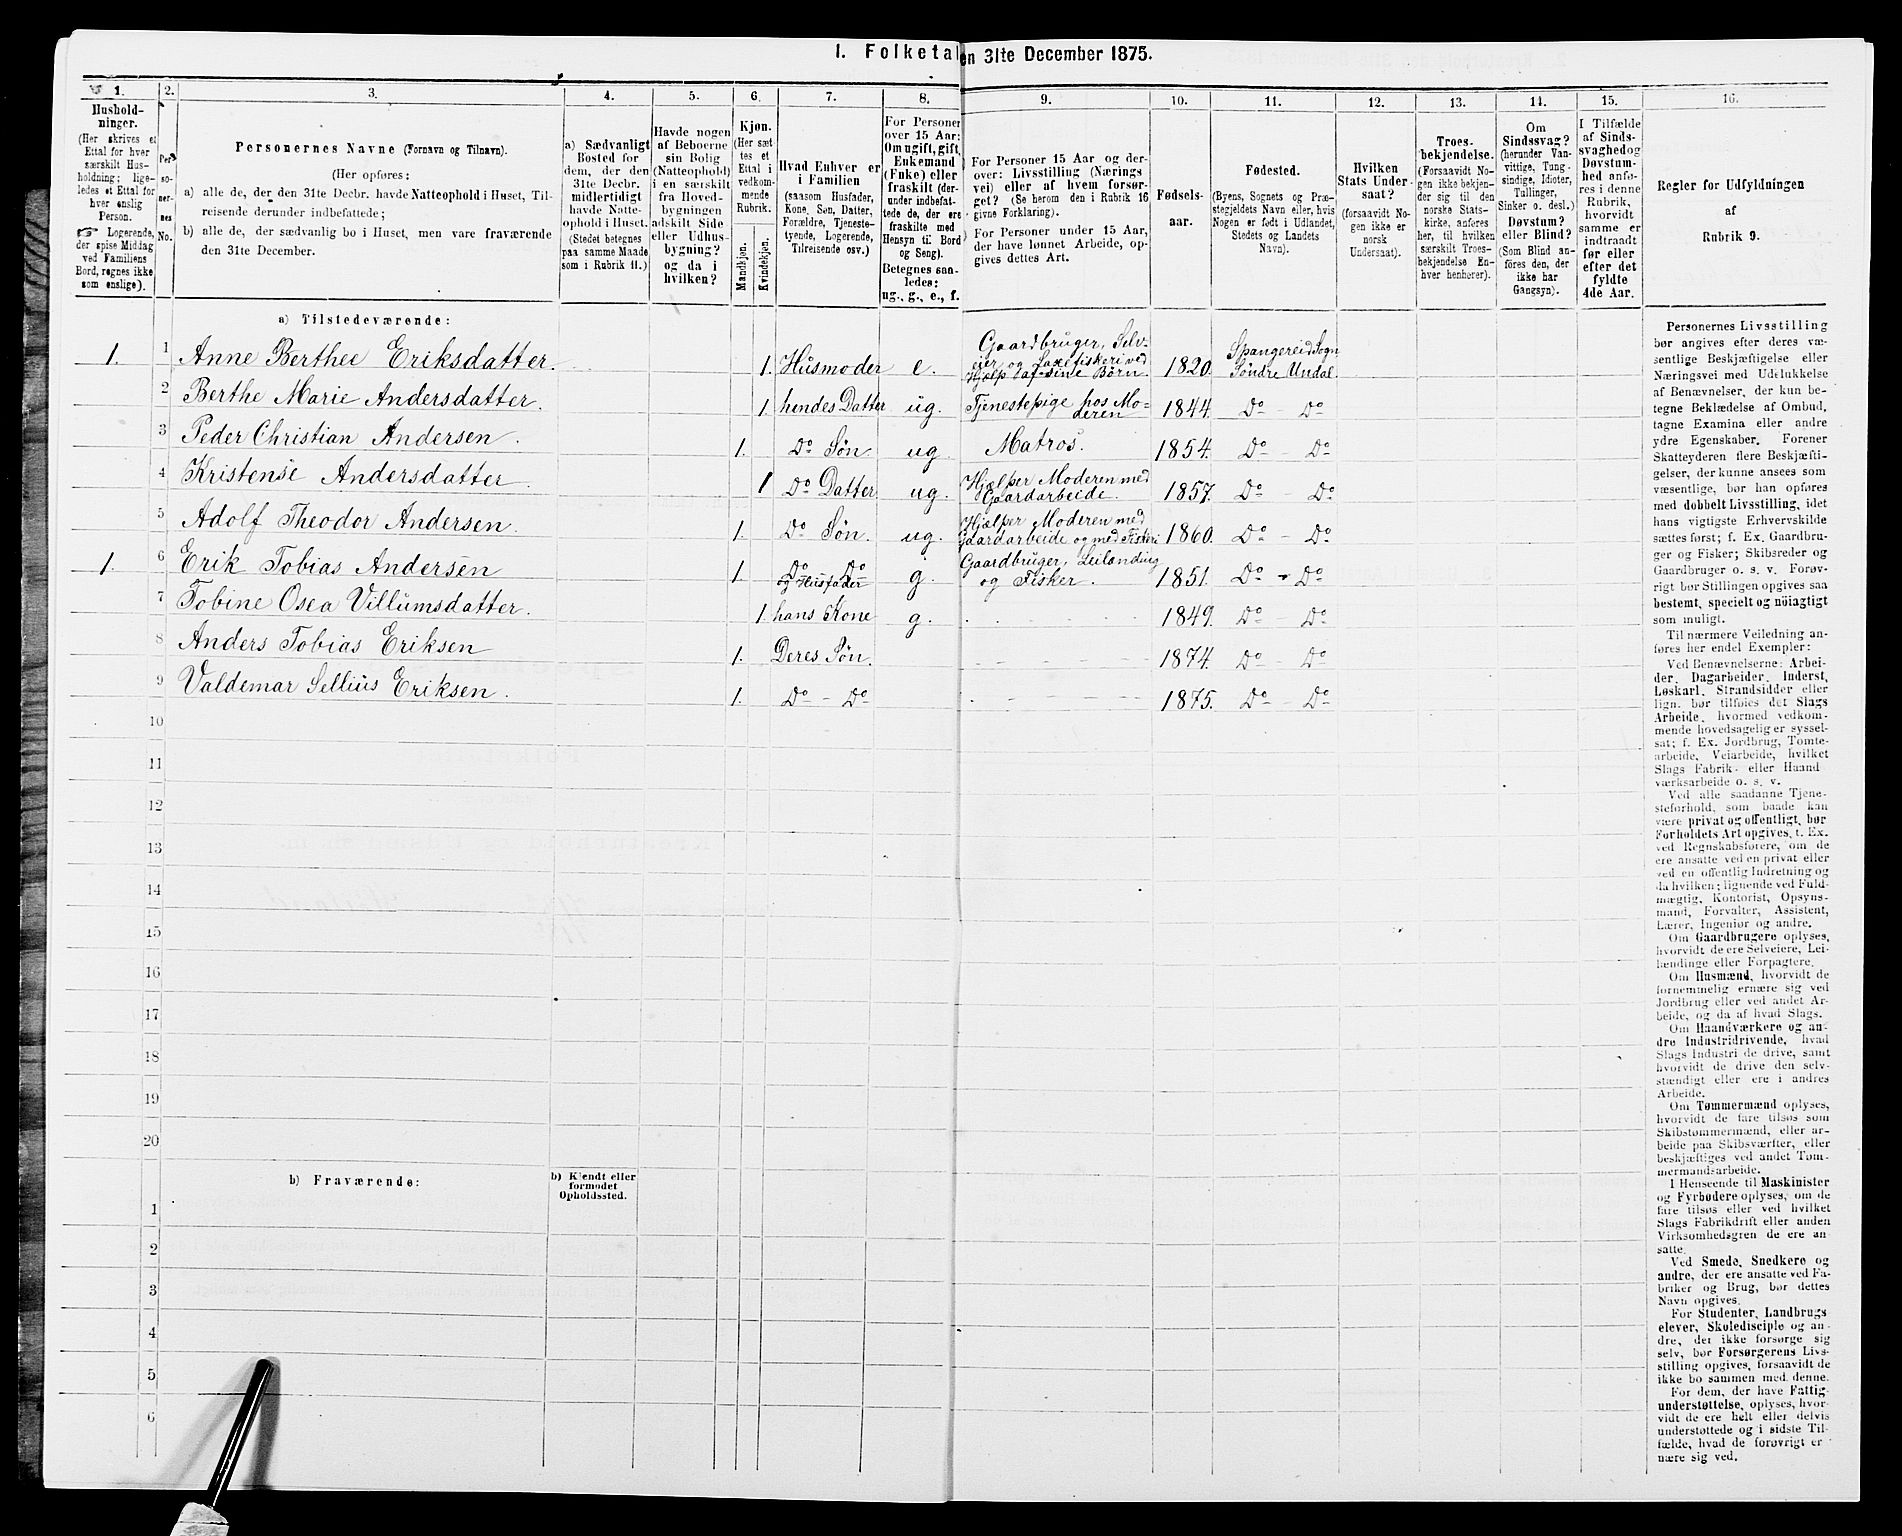 1. Folketal den 31te December 1875.
1. 2. 3. 4. 5. 6. 7. 8. 9. 10. 11. 12. 13. 14. 15. 16.
Hushold-
ninger.
(Her skrives et
Ettal for hver
særskilt Hus-
holdning; lige-
ledes et Ettal for
hver enslig
Person.
☞ Logerende,
der spise Middag
ved Familiens
Bord, regnes ikke
som enslige).
Per-
so-
ner-
nes
No.
Personernes Navne (Fornavn og Tilnavn).
(Her opføres:
a) alle de, der den 31te Decbr. havde Natteophold i Huset, Til-
reisende derunder indbefattede;
b) alle de, der sædvanlig bo i Huset, men vare fraværende
den 31te December.
a) Sædvanligt
Bosted for
dem, der den
31te Decbr.
midlertidigt
havde Natte-
ophold i Huset.
(Stedet betegnes
paa samme Maade
som i Rubrik 11.)
Havde nogen
af Beboerne
sin Bolig
(Natteophold)
i en særskilt
fra Hoved-
bygningen
adskilt Side
eller Udhus-
bygning?
og da i
hvilken?
Kjøn.
(Her sæt-
tes et
Ettal i
vedkom-
mende
Rubrik.
Mandkjøn.
Kvindekjøn.
Hvad Enhver er
i Familien
(saasom Husfader,
Kone, Søn, Datter,
Forældre, Tjeneste-
tyende, Logerende,
Tilreisende osv.)
For Personer
over 15 Aar:
Om ugift, gift,
Enkemand
(Enke) eller
fraskilt (der-
under indbefat-
tede de, der ere
fraskilte med
Hensyn til Bord
og Seng).
Betegnes saa-
ledes:
ug., g., e., f.
For Personer 15 Aar og der-
over: Livsstilling (Nærings
vei) eller af hvem forsør-
get? (Se herom den i Rubrik 16
givne Forklaring).
For Personer under 15 Aar,
der have lønnet Arbeide, op-
gives dettes Art.
Fødsels-
aar.
Fødested.
(Byens, Sognets og Præ-
stegjeldets Navn eller, hvis
Nogen er født i Udlandet,
Stedets og Landets
Navn).
Hvilken
Stats Under-
saat?
(forsaavidt No-
gen ikke er
norsk
Undersaat).
Troes-
bekjendelse.
(Forsaavidt No-
gen ikke bekjen-
der sig til den
norske Stats-
kirke, anføres
her, til hvilken
særskilt Troes-
bekjendelse En-
hver henhører).
Om
Sindssvag?
(herunder Van-
vittige, Tung-
sindige, Idioter,
Tullinger,
Sinker o. desl.)
Døvstum?
eller Blind?
(Som Blind an-
føres den, der
ikke har
Gangsyn).
I Tilfælde
af Sinds-
svaghed og
Døvstum-
hed anfø-
res i denne
Rubrik,
hvorvidt
samme er
indtraadt
før eller
efter det
fyldte
4de Aar.
Regler for Udfyldningen
af
Rubrik 9.
a) Tilstedeværende:
1. 1 Anne Berthee Eriksdatter. 1. Husmoder e. Gaardbruger, Selv-
eier og Laxefiskeri ved
Hjælp af sine Børn. 1820. Spangereid Sogn
Søndre Undal.
2 Berthe Marie Andersdatter. 1 hendes Datter ug. Tjenestepige hos Mo-
deren 1844. Do - Do
3 Peder Christian Andersen. 1. Do Søn. ug. Matros. 1854. Do - Do
4 Kristense Andersdatter. 1 Do Datter. ug. Hjælper Moderen med
Gaardarbeide. 1857. Do - Do
5 Adolf Theodor Andersen. 1. Do Søn. ug. Hjælper Moderen med
Gaardarbeide og med Fiskeri 1860. Do - Do
1. 6 Erik Tobias Andersen 1 Do Do
og Husfader g. Gaardbruger, Leilænding
og Fisker. 1851. Do - Do
7 Tobine Osea Villumsdatter. 1. hans Kone g. 1849. Do - Do
8 Anders Tobias Eriksen 1. Deres Søn. 1874. Do - Do
9 Valdemar Sellius Eriksen. 1. Do - Do 1875. Do - Do
10
11
12
13
14
15
16
17
18
19
20
b) Fraværende:
b) Kjendt eller
formodet
Opholdssted.
1
2
3
4
5
6
Personernes Livsstilling
bør angives efter deres væ-
sentlige Beskjæftigelse eller
Næringsvei med Udelukkelse
af Benævnelser, der kun be-
tegne Beklædelse af Ombud,
tagne Examina eller andre
ydre Egenskaber. Forener
Skatteyderen flere Beskjæfti-
gelser, der kunne ansees som
væsentlige, bør han opføres
med dobbelt Livsstilling, idet
hans vigtigste Erhvervskilde
sættes først; f. Ex. Gaardbru-
ger og Fisker; Skibsreder og
Gaardbruger o. s. v. Forøv-
rigt bør Stillingen opgives saa
bestemt, specielt og nöiagtigt
som muligt.
Til nærmere Veiledning an-
føres her endel Exempler:
Ved Benævnelserne: Arbei-
der, Dagarbeider, Inderst,
Løskarl, Strandsidder eller
lign. bør tilføies det Slags
Arbeide, hvormed vedkom-
mende hovedsagelig er syssel-
sat; f. Ex. Jordbrug, Tomte-
arbeide, Veiarbeide, hvilket
Slags Fabrik- eller Haand
værksarbeide o. s. v.
Ved alle saadanne Tjene-
steforhold, som baade kan
være privat og offentligt, bør
Forholdets Art opgives, t. Ex.
ved Regnskabsførere, om de
ere ansatte ved en privat eller
ved en offentlig Indretning og
da hvilken; lignende ved Fuld-
mægtig, Kontorist, Opsyns-
mand, Forvalter, Assistent,
Lærer, Ingeniør og andre.
Om Gaardbrugere oplyses,
hvorvidt de ere Selveiere, Lei-
lændinge eller Forpagtere.
Om Husmænd, hvorvidt de
fornemmelig ernære sig ved
Jordbrug eller ved andet Ar-
beide, og da af hvad Slags.
Om Haandværkere og an-
dre Industridrivende, hvad
Slags Industri de drive, samt
hvorvidt de drive den selv-
stændigt eller ere i andres
Arbeide.
Om Tømmermænd oplyses,
hvorvidt de fare tilsøs som
Skibstømmermænd, eller ar-
beide paa Skibsværfter, eller
beskjæftiges ved andet Tøm-
mermandsarbeide.
I Henseende til Maskinister
og Fyrbødere oplyses, om de
fare tilsøs eller ved hvilket
Slags Fabrikdrift eller anden
Virksomhedsgren de ere an-
satte.
Ved Smede, Snedkere og
andre, der ere ansatte ved Fa-
briker og Brug, bør dettes
Navn opgives.
For Studenter, Landbrugs
elever, Skoledisciple og an-
dre, der ikke forsørge sig
selv, bør Forsørgerens Livs-
stilling opgives, forsaavidt de
ikke bo sammen med denne.
For dem, der have Fattig-
understøttelse, oplyses, hvor-
vidt de ere helt eller delvis
understøttede og i sidste Til-
fælde, hvad de forøvrigt er-
nære sig ved.